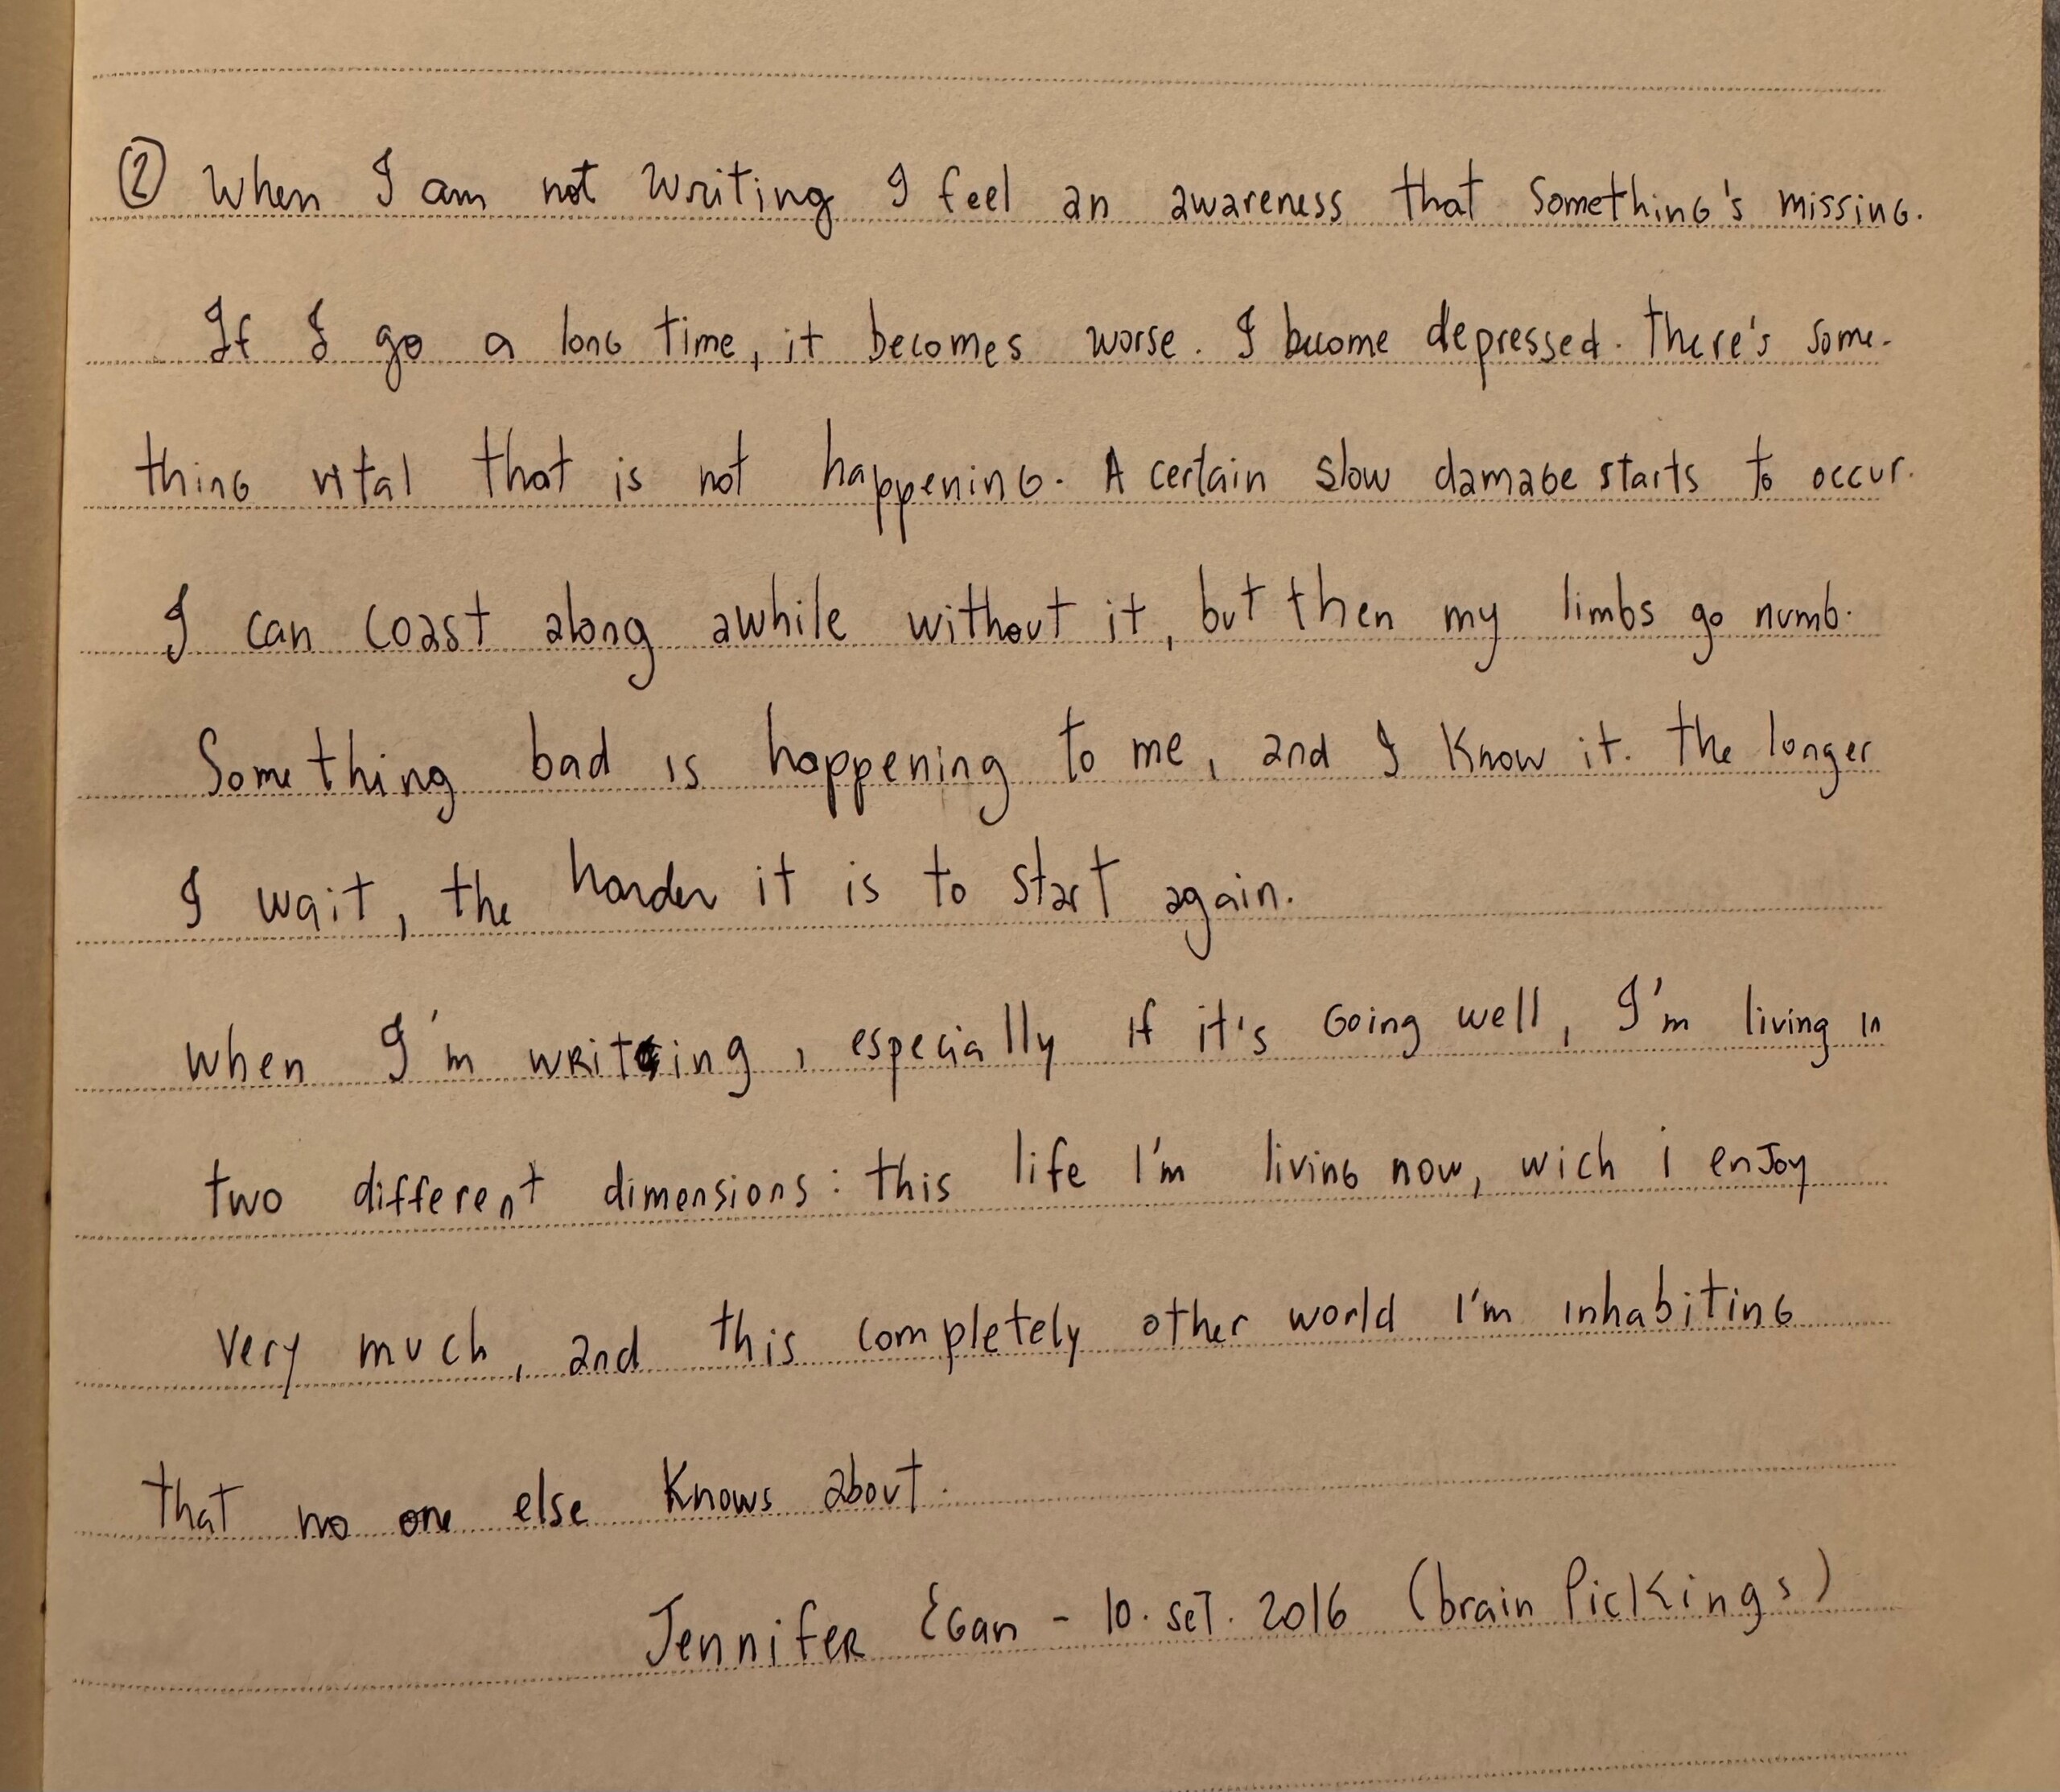 ② When I am not writing I feel an awareness that something's missing.
If I go a long time, it becomes worse. I become depressed. There's some-
thing vital that is not happening. A certain slow damage starts to occur.
I can coast along awhile without it, but then my limbs go numb.
Something bad is happening to me, and I know it. The longer
I wait, the harder it is to start again.
When I'm writing, especially if it's going well, I'm living in
two different dimensions: this life I'm living now, wich i enjoy
very much, and this completely other world I'm inhabiting
that no one else knows about.
Jennifer Egan - 10. set. 2016 (brain Pickings)